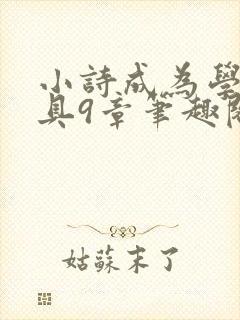 小詩成為學
具9章筆趣閣
姑蘇末了